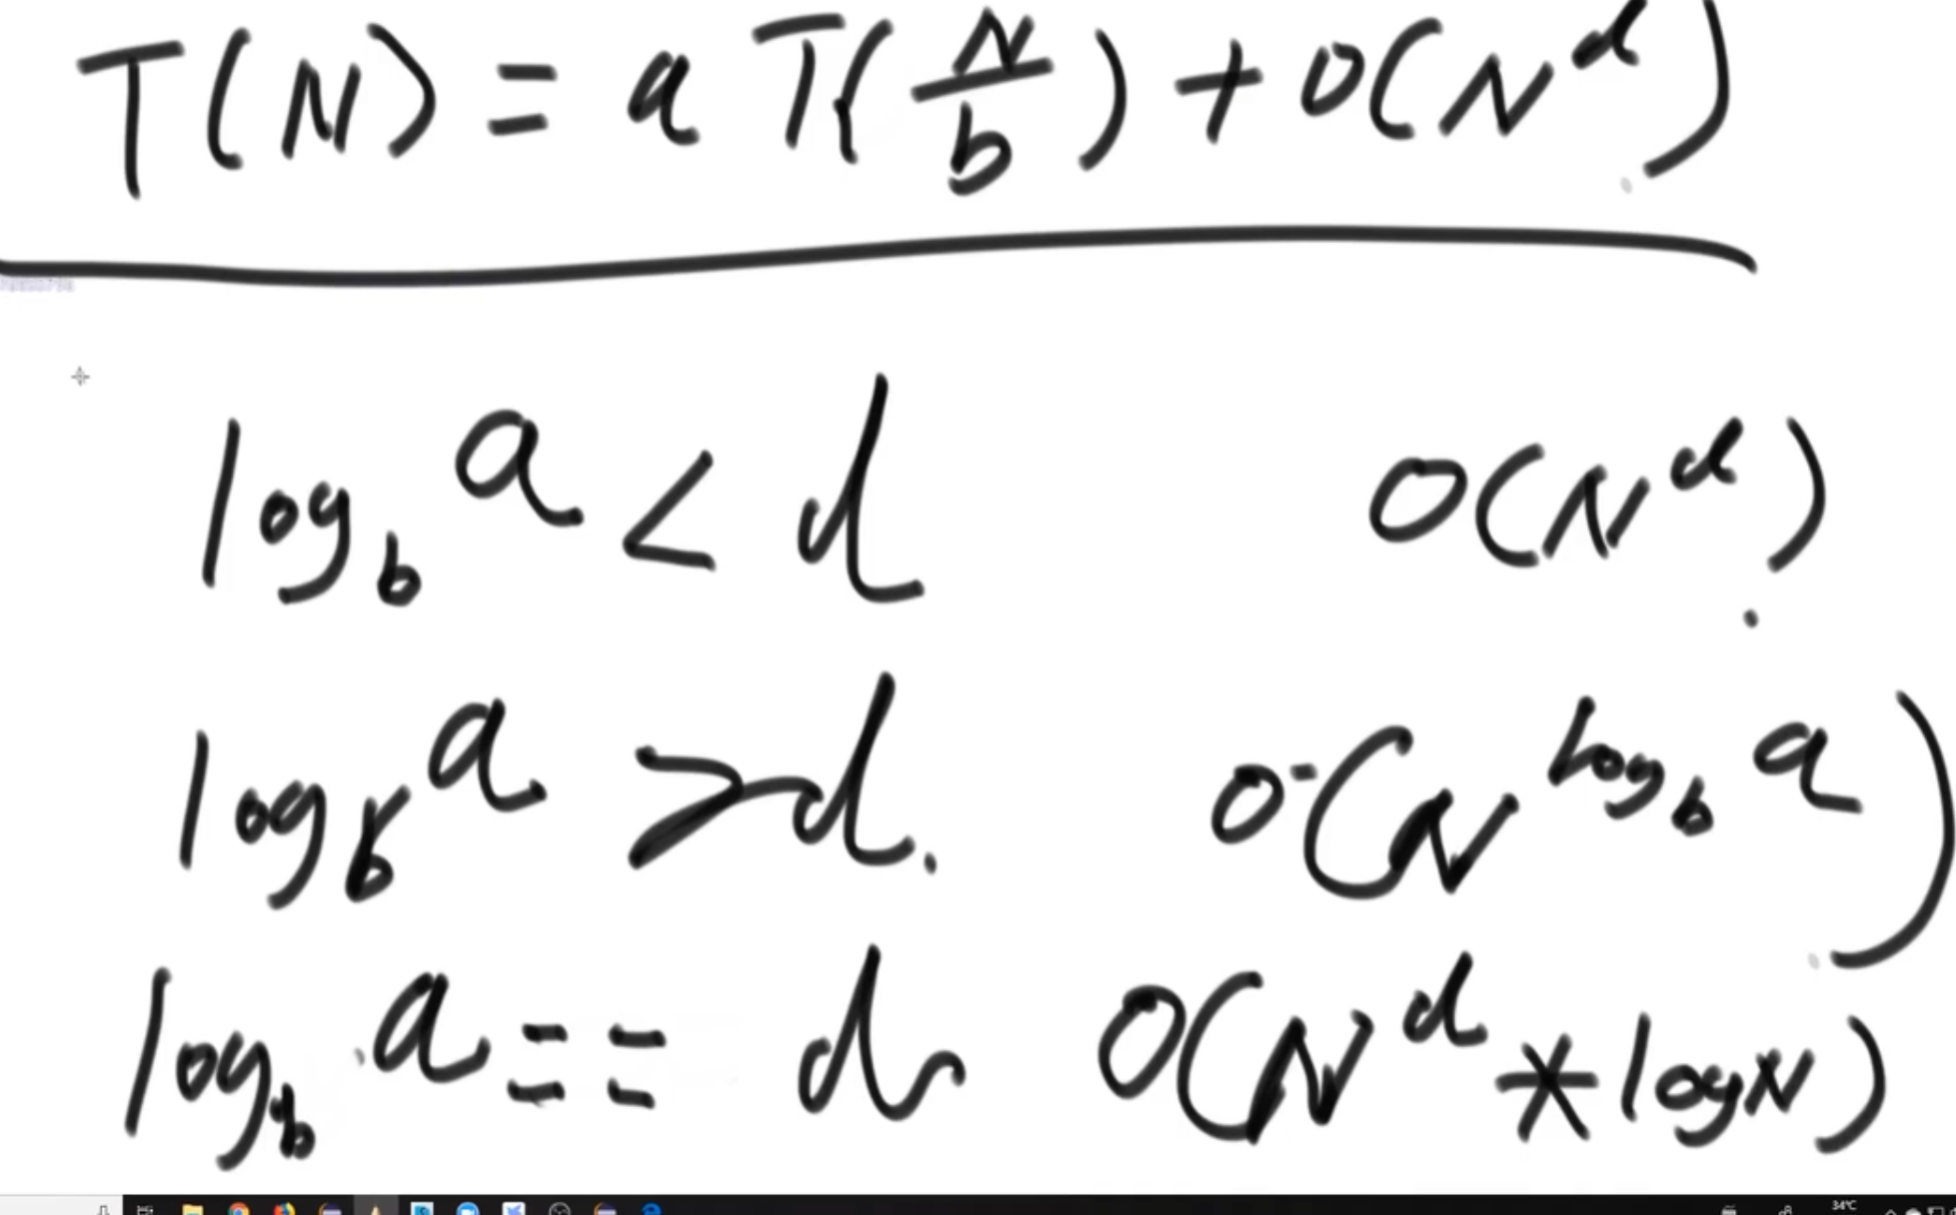 T(N) = a T(N/b) + O(N^d)
log_b a < d O(N^d)
log_b a > d. O(N^log_b a)
log_b a == d O(N^d * logN)
34°C